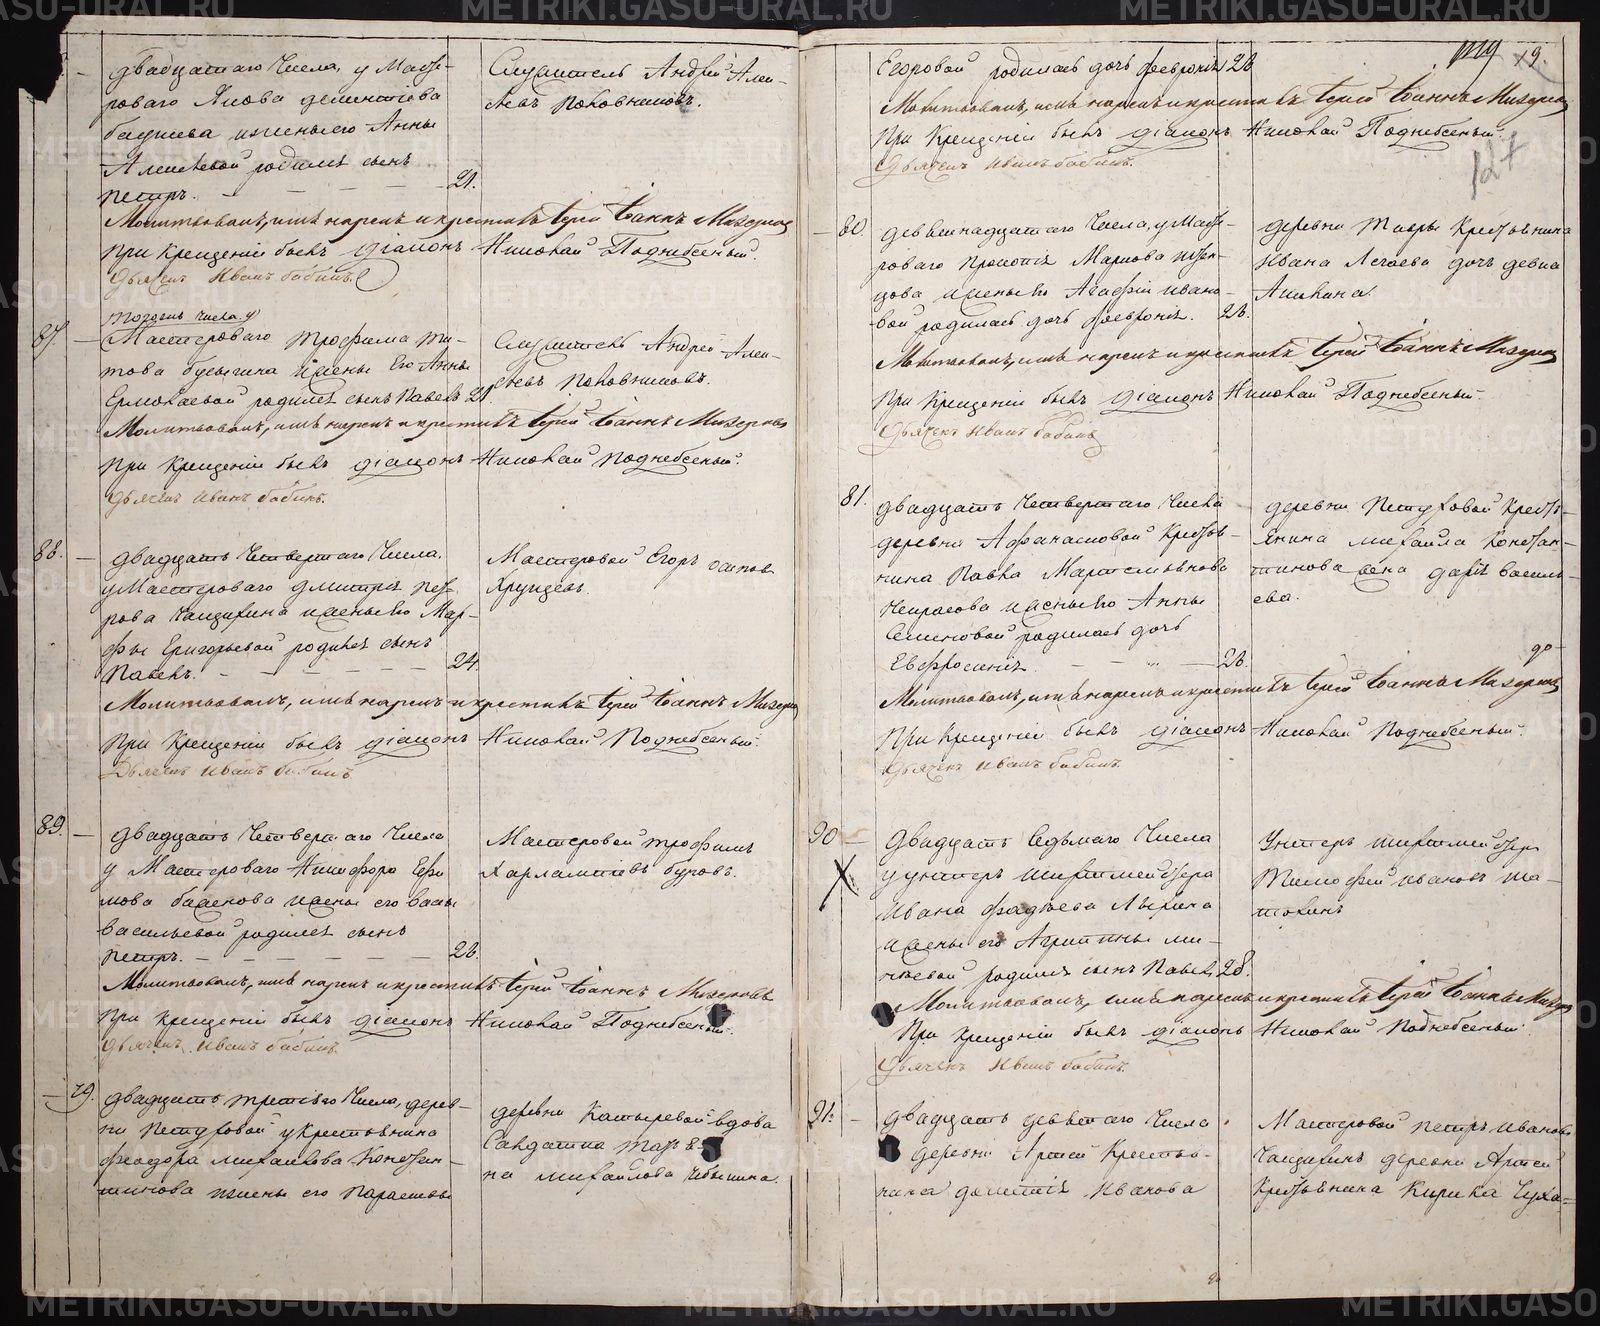 двадцатаго Числа, у Масте-
роваго Якова дементiева
бадыева изжены его Анны
Алексѣевой родился сынъ
Петръ. 21.
Служитель Андрей Алек-
сѣевъ Половниковъ.
Молитвовалъ, имя нарекъ и крестилъ Iерей Iоаннъ
При Крещенiи былъ дiаконъ Николай Поднебесный.
Дьячекъ Иванъ бабинъ.
87.
тогожъ числа у
Мастероваго Трофима Ти-
това бусыгина жены Его Анны
Ермолаевой родился сынъ Павелъ 21.
Служитель Андрей Алек-
сѣевъ Половниковъ.
Молитвовалъ, имя нарекъ и крестилъ Iерей Iоаннъ
При Крещенiи былъ дiаконъ Николай Поднебесный.
Дьячекъ Иванъ бабинъ.
88.
двадцать Четвертаго Числа,
у Мастероваго дмитрiя Пет-
рова жены его Мар-
фы Григорьевой родился сынъ
Павелъ. 24.
Мастеровой Егоръ Осиповъ
Хрущевъ.
Молитвовалъ, имя нарекъ и крестилъ Iерей Iоаннъ
При Крещенiи былъ дiаконъ Николай Поднебесный.
Дьячекъ Иванъ бабинъ
89.
двадцать Четвертаго Числа
у Мастероваго Никифора Ефи
мова баженова жены его Вассы
Васильевой родился сынъ
Петръ. 26.
Мастеровой Трофимъ
Харлампiевъ буровъ.
Молитвовалъ, имя нарекъ и крестилъ Iерей Iоаннъ
При Крещенiи былъ дiаконъ Николай Поднебесный.
Дьячекъ Иванъ бабинъ.
79.
двадцать третьяго Числа, дерев-
ни Петуховой у Крестьянина
феодора михаилова Констан-
тинова жены его Парасковьи
деревни вдова
михаилова
Егоровой родилась дочь февронiя 26
Молитвовалъ, имя нарекъ и крестилъ Iерей Iоаннъ
При Крещенiи былъ дiаконъ Николай Поднебесный.
Дьячекъ Иванъ бабинъ.
19.
127
80
девятнадцатаго Числа, у Масте-
роваго Прокопiя Маркова
жены его Агафiи Ивано-
вой родилась дочь февронiя. 26.
деревни Тавры Крестьянина
Ивана дочь девка
Акилина.
Молитвовалъ, имя нарекъ и крестилъ Iерей Iоаннъ
При Крещенiи былъ дiаконъ Николай Поднебесный.
Дьячекъ Иванъ бабинъ
81.
двадцать Четвертаго Числа
деревни Афанасковой Крестья-
нина Павла Мартемьянова
Некрасова жены его Анны
Семеновой родилась дочь
Евфросинiя. 26.
деревни Петуховой Кресть-
янина михаила Констан-
тинова жена дарiя Василь-
ева.
Молитвовалъ, имя нарекъ и крестилъ Iерей Iоаннъ
При Крещенiи былъ дiаконъ Николай Поднебесный.
Дьячекъ Иванъ бабинъ.
90
двадцать Седьмаго Числа
у унтеръ шихтмейстера
Ивана фадѣева
жены его Агрипины
родился сынъ Павелъ 28.
Унтеръ шихтмейстеръ
Тимофей Ивановъ
Молитвовалъ, имя нарекъ и крестилъ Iерей Iоаннъ
При Крещенiи былъ дiаконъ Николай Поднебесный.
Дьячекъ Иванъ бабинъ.
91.
двадцать девятаго Числа
деревни Артей Крестья-
нина Иванова
Мастеровой Петръ Ивановъ
деревни Артей
Крестьянина Кирика
METRIKI.GASO-URAL.RU